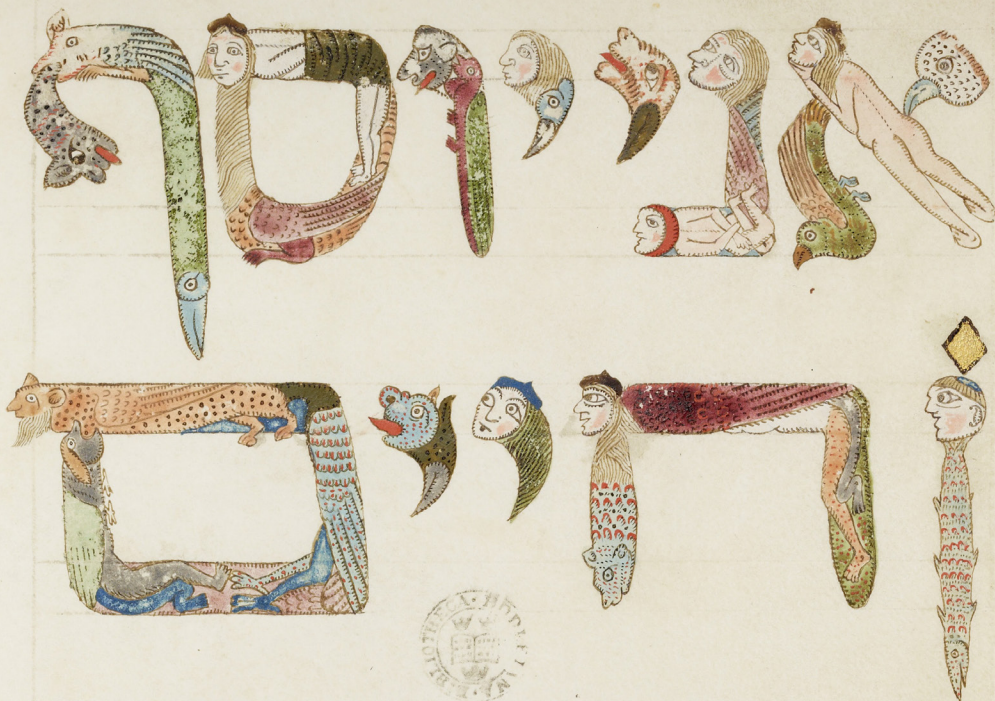 אני יוסף
ן חיים
BIBLIOTHECA BODLEIANA